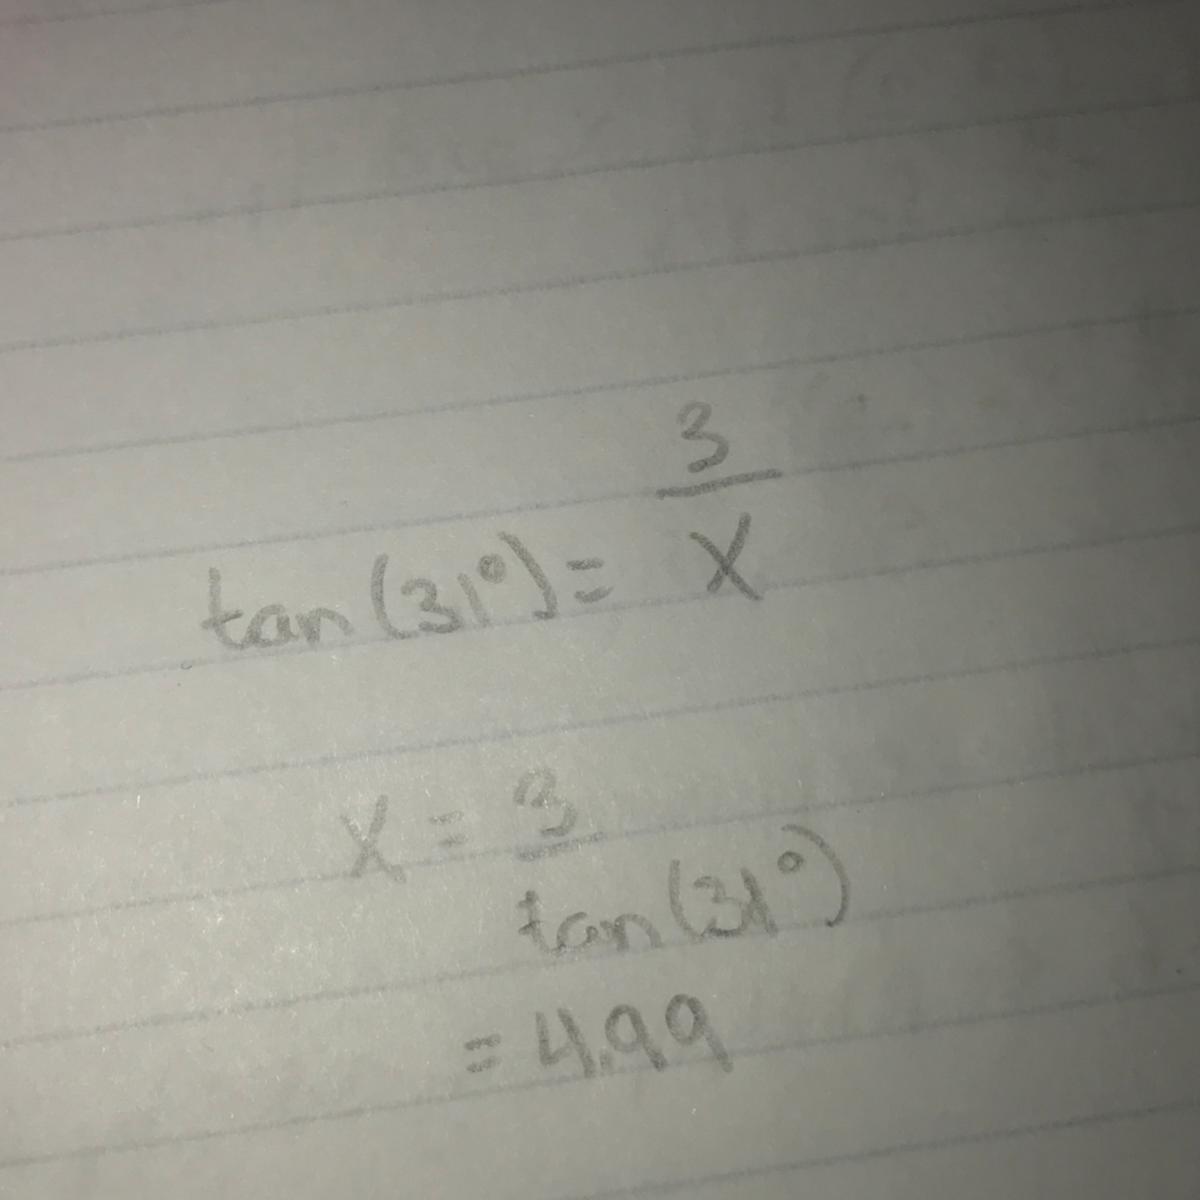 tan(31°) = 3/x
x = 3/tan(31°)
= 4.99